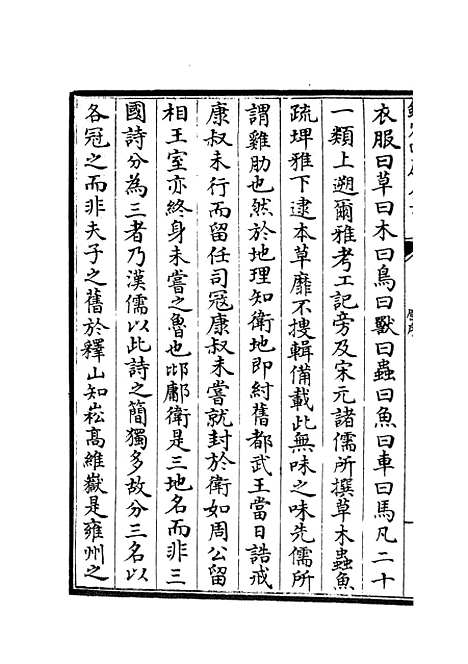 衣服曰草曰木曰鳥曰獸曰蟲曰魚曰車曰馬凡二十
一類上遡爾雅考工記旁及宋元諸儒所撰草木蟲魚
疏埤雅下逮本草靡不搜輯備載此無味之味先儒所
謂雞肋也然於地理知衛地即紂舊都武王當日誥戒
康叔未行而留任司冦康叔未嘗就封於衛如周公留
相王室亦終身未嘗之魯也邶鄘衛是三地名而非三
國詩分為三者乃漢儒以此詩之簡獨多故分三名以
各冠之而非夫子之舊於釋山知崧高維嶽是雍州之